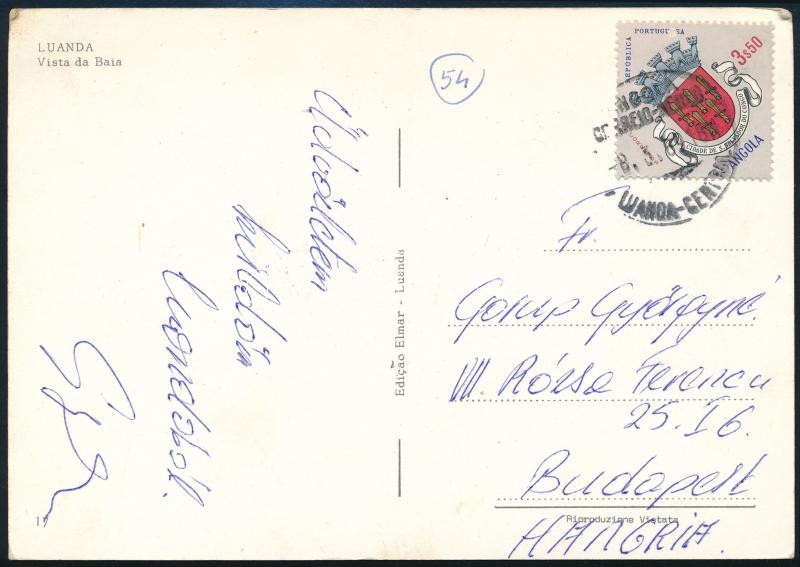 LUANDA
Vista da Baia
54
Üdvözletem
küldöm
Luandából.
17
Edição Elmar - Luanda
REPÚBLICA PORTUGUESA
3$50
CIDADE DE S. SALVADOR DO CONGO
ANGOLA
CORREIO
LUANDA-CENTRAL
Fr.
Györgyné
VII. Rózsa Ferenc u
25. I 6.
Budapest
Riproduzione Vietata
HANGRIA.